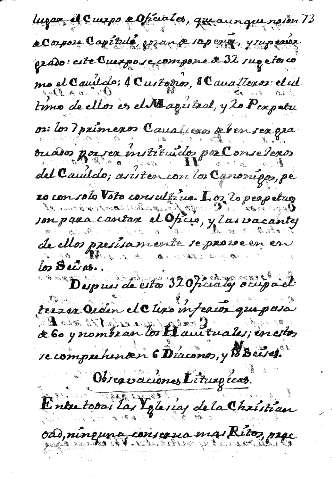 lugar, el Cuerpo de Oficiales, que aunque no son 73
de Corpore Capituli, gozan de superior, y superior
grado: este Cuerpo se compone de 32 sugetos co
mo el Cavildo; 4 Custodios, 8 Cavalleros: el ul
timo de ellos es el Magistral, y 20 Perpetu
os: los 7 primeros Cavalleros deven ser gra
duados por ser instituidos por Consileros
del Cavildo; asisten con los Canonigos, pe
ro con solo Voto consultivo. Los 20 perpetuos
son para cantar el Oficio, y las vacantes
de ellos precisamente se proveen en
los Seises.
Despues de estos 32 Oficiales ocupa el
tercer Orden el Clero inferior que pasa
de 60 y nombran los Havituales; en estos
se comprehenden 6 Diaconos, y Seises.
Observaciones Liturgicas.
Entre todas las Yglesias de la Christian
dad, ninguna conserva mas Ritos, prac